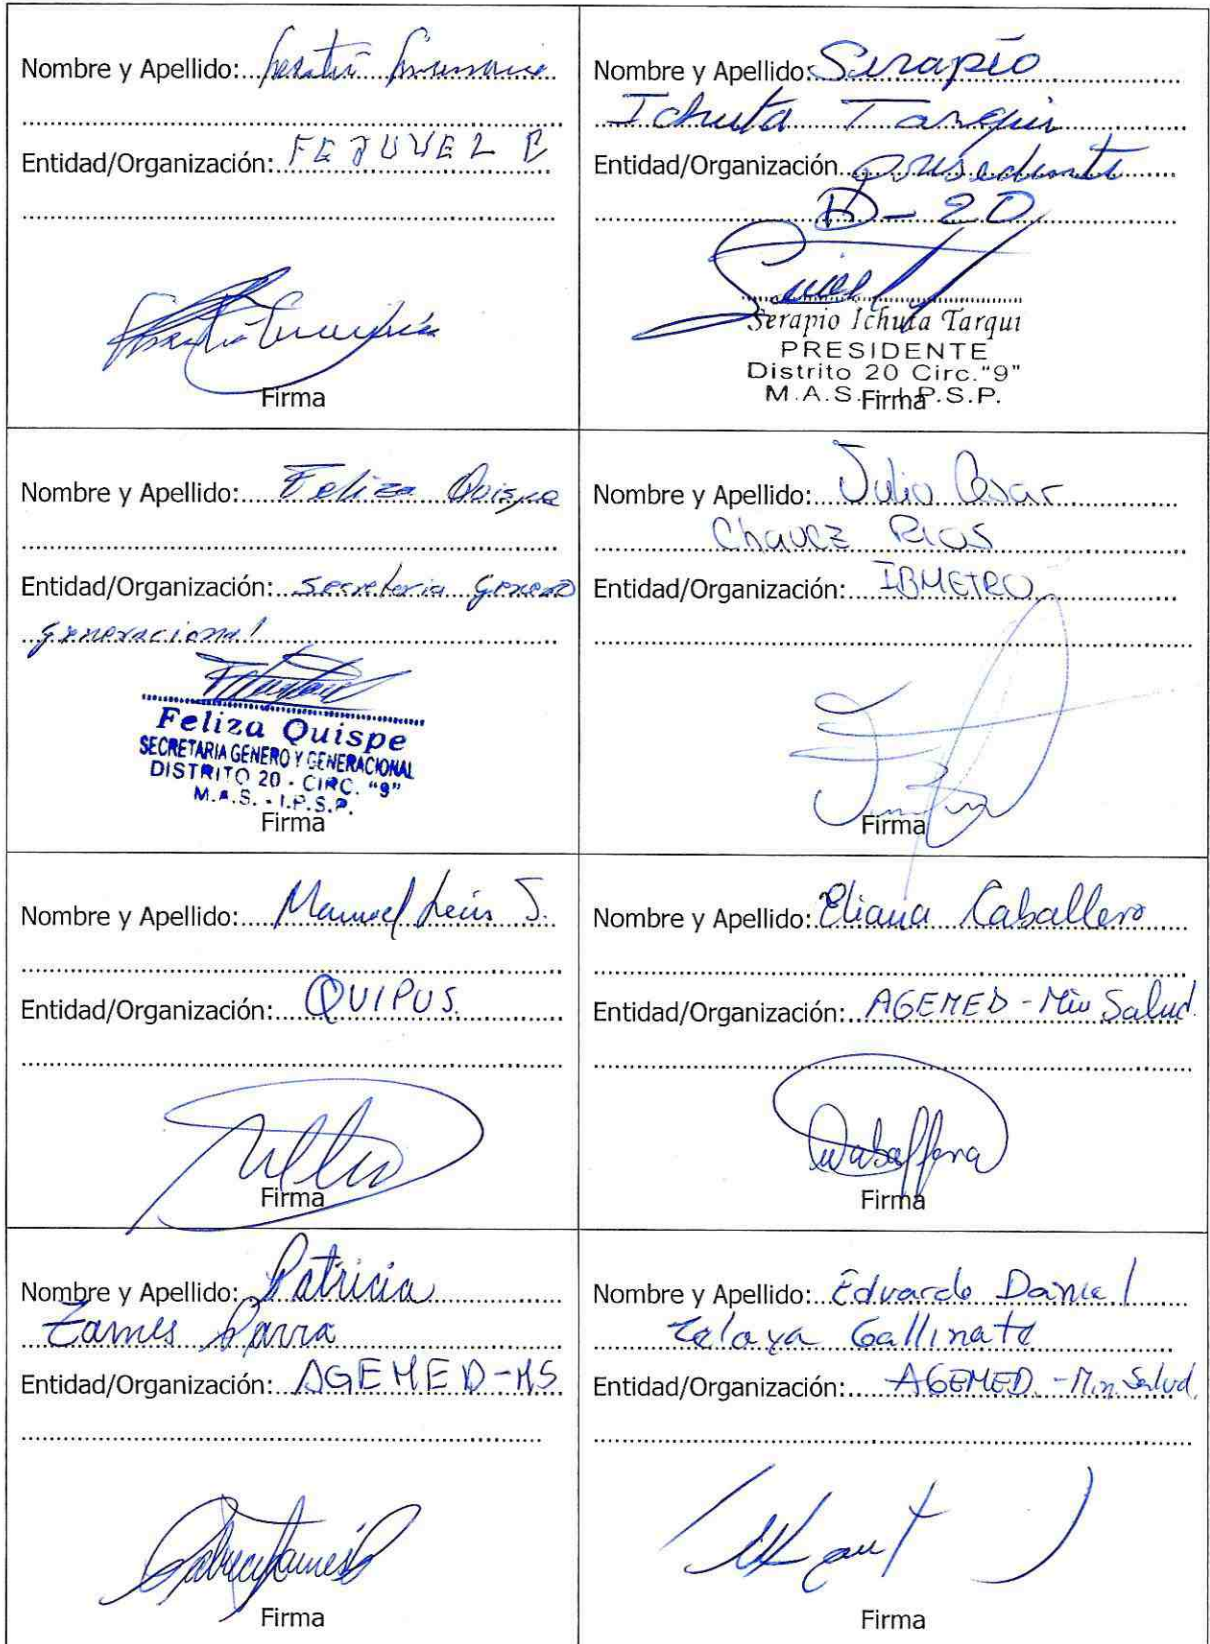 Nombre y Apellido:
Entidad/Organización: FEJUVEL P
Firma
Nombre y Apellido: Serapio
Ichuta Tarqui
Entidad/Organización presedente
D-20
Serapio Ichuta Tarqui
PRESIDENTE
Distrito 20 Circ."9"
M.A.S. I.P.S.P.
Firma
Nombre y Apellido: Feliza Quispe
Entidad/Organización: Secretaria Genero
Generacional
Feliza Quispe
SECRETARIA GENERO Y GENERACIONAL
DISTRITO 20 - CIRC. "9"
M.A.S. - I.P.S.P.
Firma
Nombre y Apellido: Julio Cesar
Chavez Rios
Entidad/Organización: IBMETRO
Firma
Nombre y Apellido: Manuel León S.
Entidad/Organización: QUIPUS.
Firma
Nombre y Apellido: Eliana Caballero
Entidad/Organización: AGEMED - Min Salud.
Firma
Nombre y Apellido: Patricia
Tames Parra
Entidad/Organización: AGEMED-MS
Firma
Nombre y Apellido: Eduardo Daniel
Zelaya Gallinate
Entidad/Organización: AGEMED. - Min Salud.
Firma